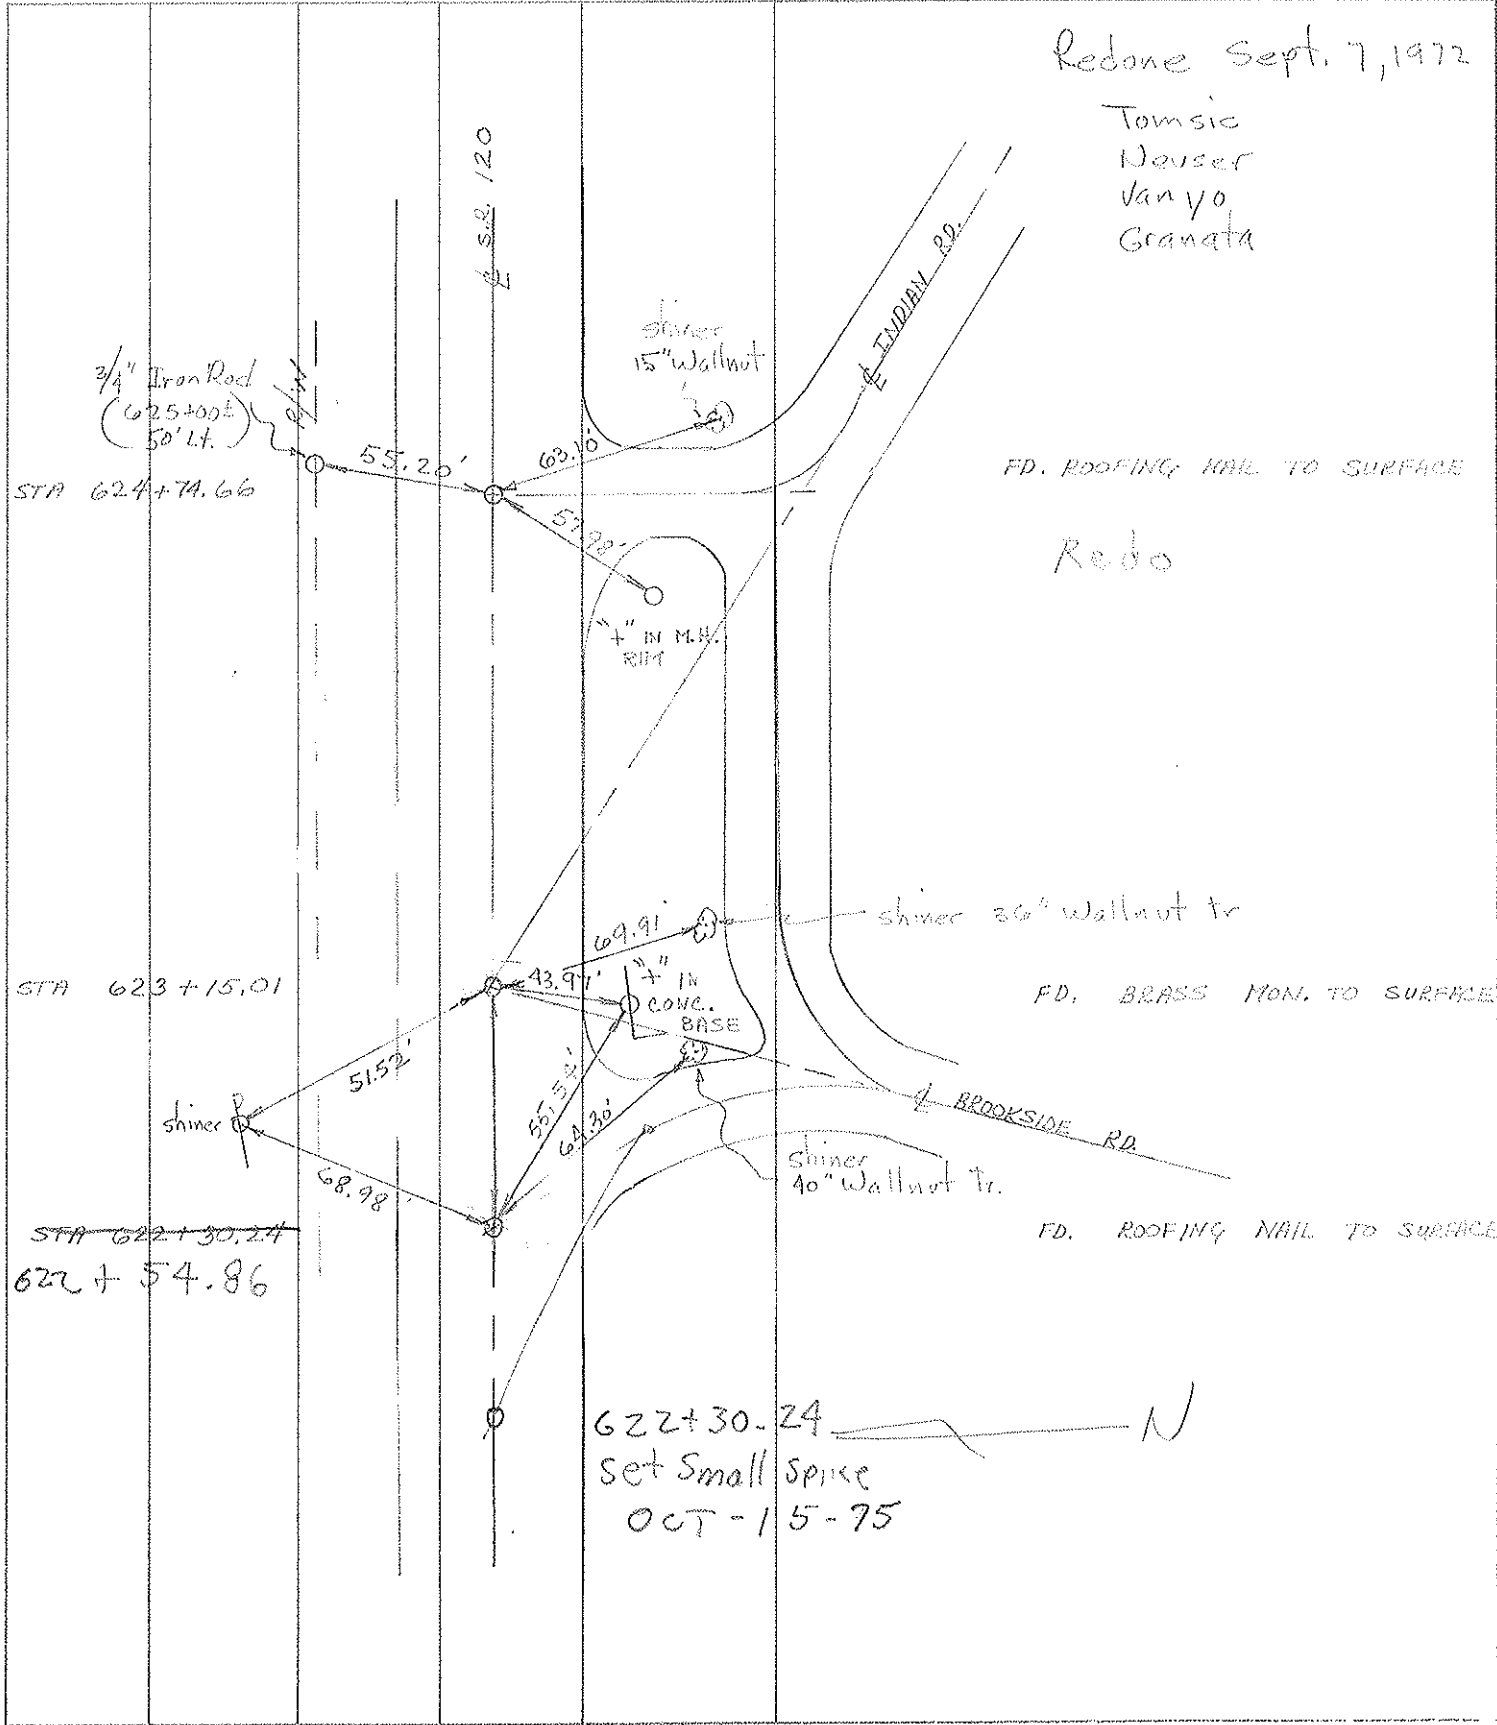 Redone Sept. 7, 1972
Tomsic
Neuser
Vanyo
Granata
℄ S.R. 120
℄ INDIAN RD.
shiner
15" Wallnut
3/4" Iron Rod
(625+00±
50' Lt.)
R/W
55.20'
63.10'
STA 624+74.66
FD. ROOFING NAIL TO SURFACE
57.98'
Redo
"+" IN M.H.
RIM
69.91
shiner 36" Wallnut tr
STA 623+15.01
43.97'
"+" IN
CONC.
BASE
FD. BRASS MON. TO SURFACE
51.52'
shiner
55.54'
64.30'
℄ BROOKSIDE RD.
shiner
40" Wallnut Tr.
68.98'
STA 622+30.24
622+54.86
FD. ROOFING NAIL TO SURFACE
622+30.24
N
Set Small Spike
OCT-15-75